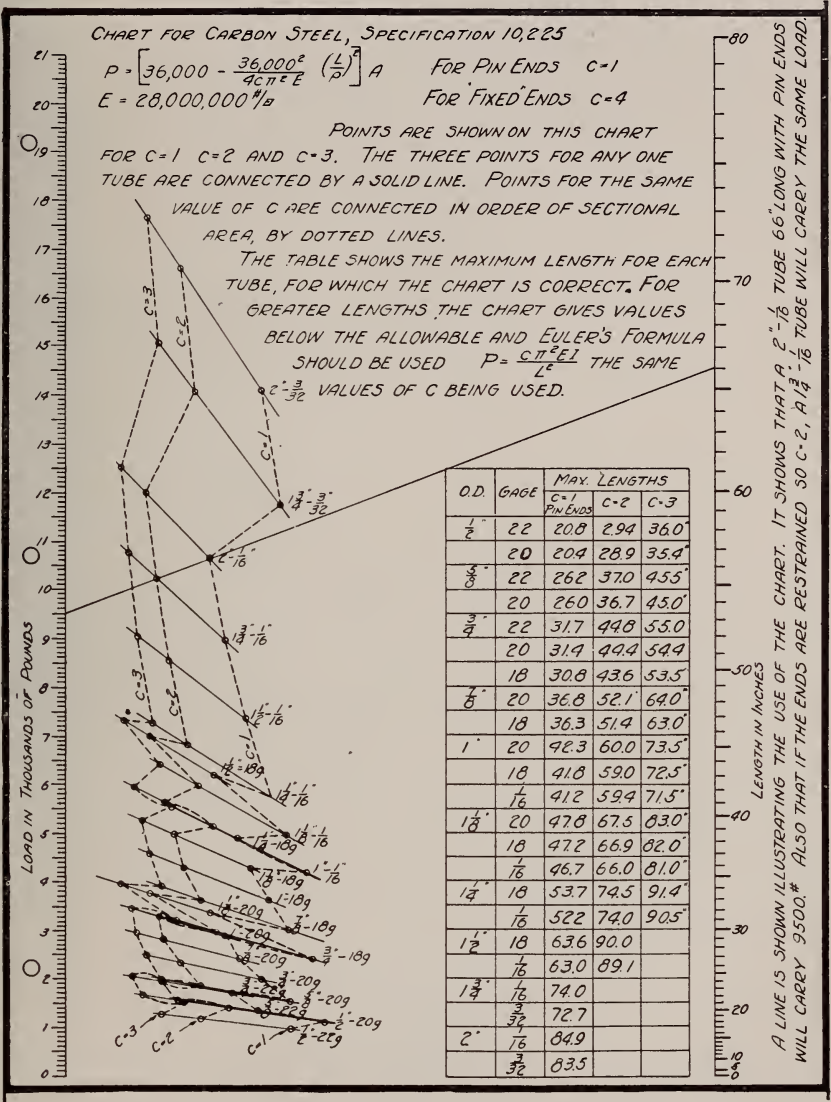 CHART FOR CARBON STEEL, SPECIFICATION 10,225
P = [36,000 - 36,000²/4Cπ²E (L/ρ)²] A FOR PIN ENDS C=1
E = 28,000,000 #/□" FOR "FIXED" ENDS C=4
POINTS ARE SHOWN ON THIS CHART
FOR C=1 C=2 AND C=3. THE THREE POINTS FOR ANY ONE
TUBE ARE CONNECTED BY A SOLID LINE. POINTS FOR THE SAME
VALUE OF C ARE CONNECTED IN ORDER OF SECTIONAL
AREA, BY DOTTED LINES.
THE TABLE SHOWS THE MAXIMUM LENGTH FOR EACH
TUBE, FOR WHICH THE CHART IS CORRECT. FOR
GREATER LENGTHS THE CHART GIVES VALUES
BELOW THE ALLOWABLE AND EULER'S FORMULA
SHOULD BE USED P = Cπ²EI/L² THE SAME
VALUES OF C BEING USED.
21
20
19
18
17
16
15
14
13
12
11
10
9
8
7
6
5
4
3
2
1
0
LOAD IN THOUSANDS OF POUNDS
C=3
C=2
C=1
2"-3/32
1 3/4"-3/32"
2"-1/16"
1 3/4"-1/16"
1 1/2"-1/16"
C=3
C=2
C=1
1 1/2"-18g
1 1/4"-1/16"
1 1/8"-1/16
1 1/4"-18g
1"-1/16"
1 1/8"-18g
1-18g
1 1/8"-20g
7/8"-18g
1-20g
3/4"-18g
7/8-20g
3/4"-20g
3/4"-22g
5/8"-20g
5/8-22g
1/2"-20g
1/2"-22g
C=3
C=2
C=1
O.D. GAGE MAX. LENGTHS
C=1 PIN ENDS C=2 C=3
1/2" 22 20.8 2.94 36.0"
20 20.4 28.9 35.4"
5/8" 22 262 37.0 455"
20 260 36.7 45.0"
3/4" 22 31.7 44.8 55.0
20 31.4 44.4 54.4
18 30.8 43.6 53.5"
7/8" 20 36.8 52.1 64.0"
18 36.3 51.4 63.0"
1" 20 42.3 60.0 73.5"
18 41.8 59.0 72.5"
1/16 41.2 59.4 71.5"
1 1/8" 20 47.8 67.5 83.0"
18 47.2 66.9 82.0"
1/16 46.7 66.0 81.0"
1 1/4" 18 53.7 74.5 91.4"
1/16 522 74.0 90.5"
1 1/2" 18 63.6 90.0
1/16 63.0 89.1
1 3/4" 1/16 74.0
3/32 72.7
2" 1/16 84.9
3/32 83.5
80
70
60
50
40
30
20
10
0
LENGTH IN INCHES
A LINE IS SHOWN ILLUSTRATING THE USE OF THE CHART. IT SHOWS THAT A 2"-1/16 TUBE 66" LONG WITH PIN ENDS
WILL CARRY 9500.# ALSO THAT IF THE ENDS ARE RESTRAINED SO C=2, A 1 3/4"-1/16 TUBE WILL CARRY THE SAME LOAD.